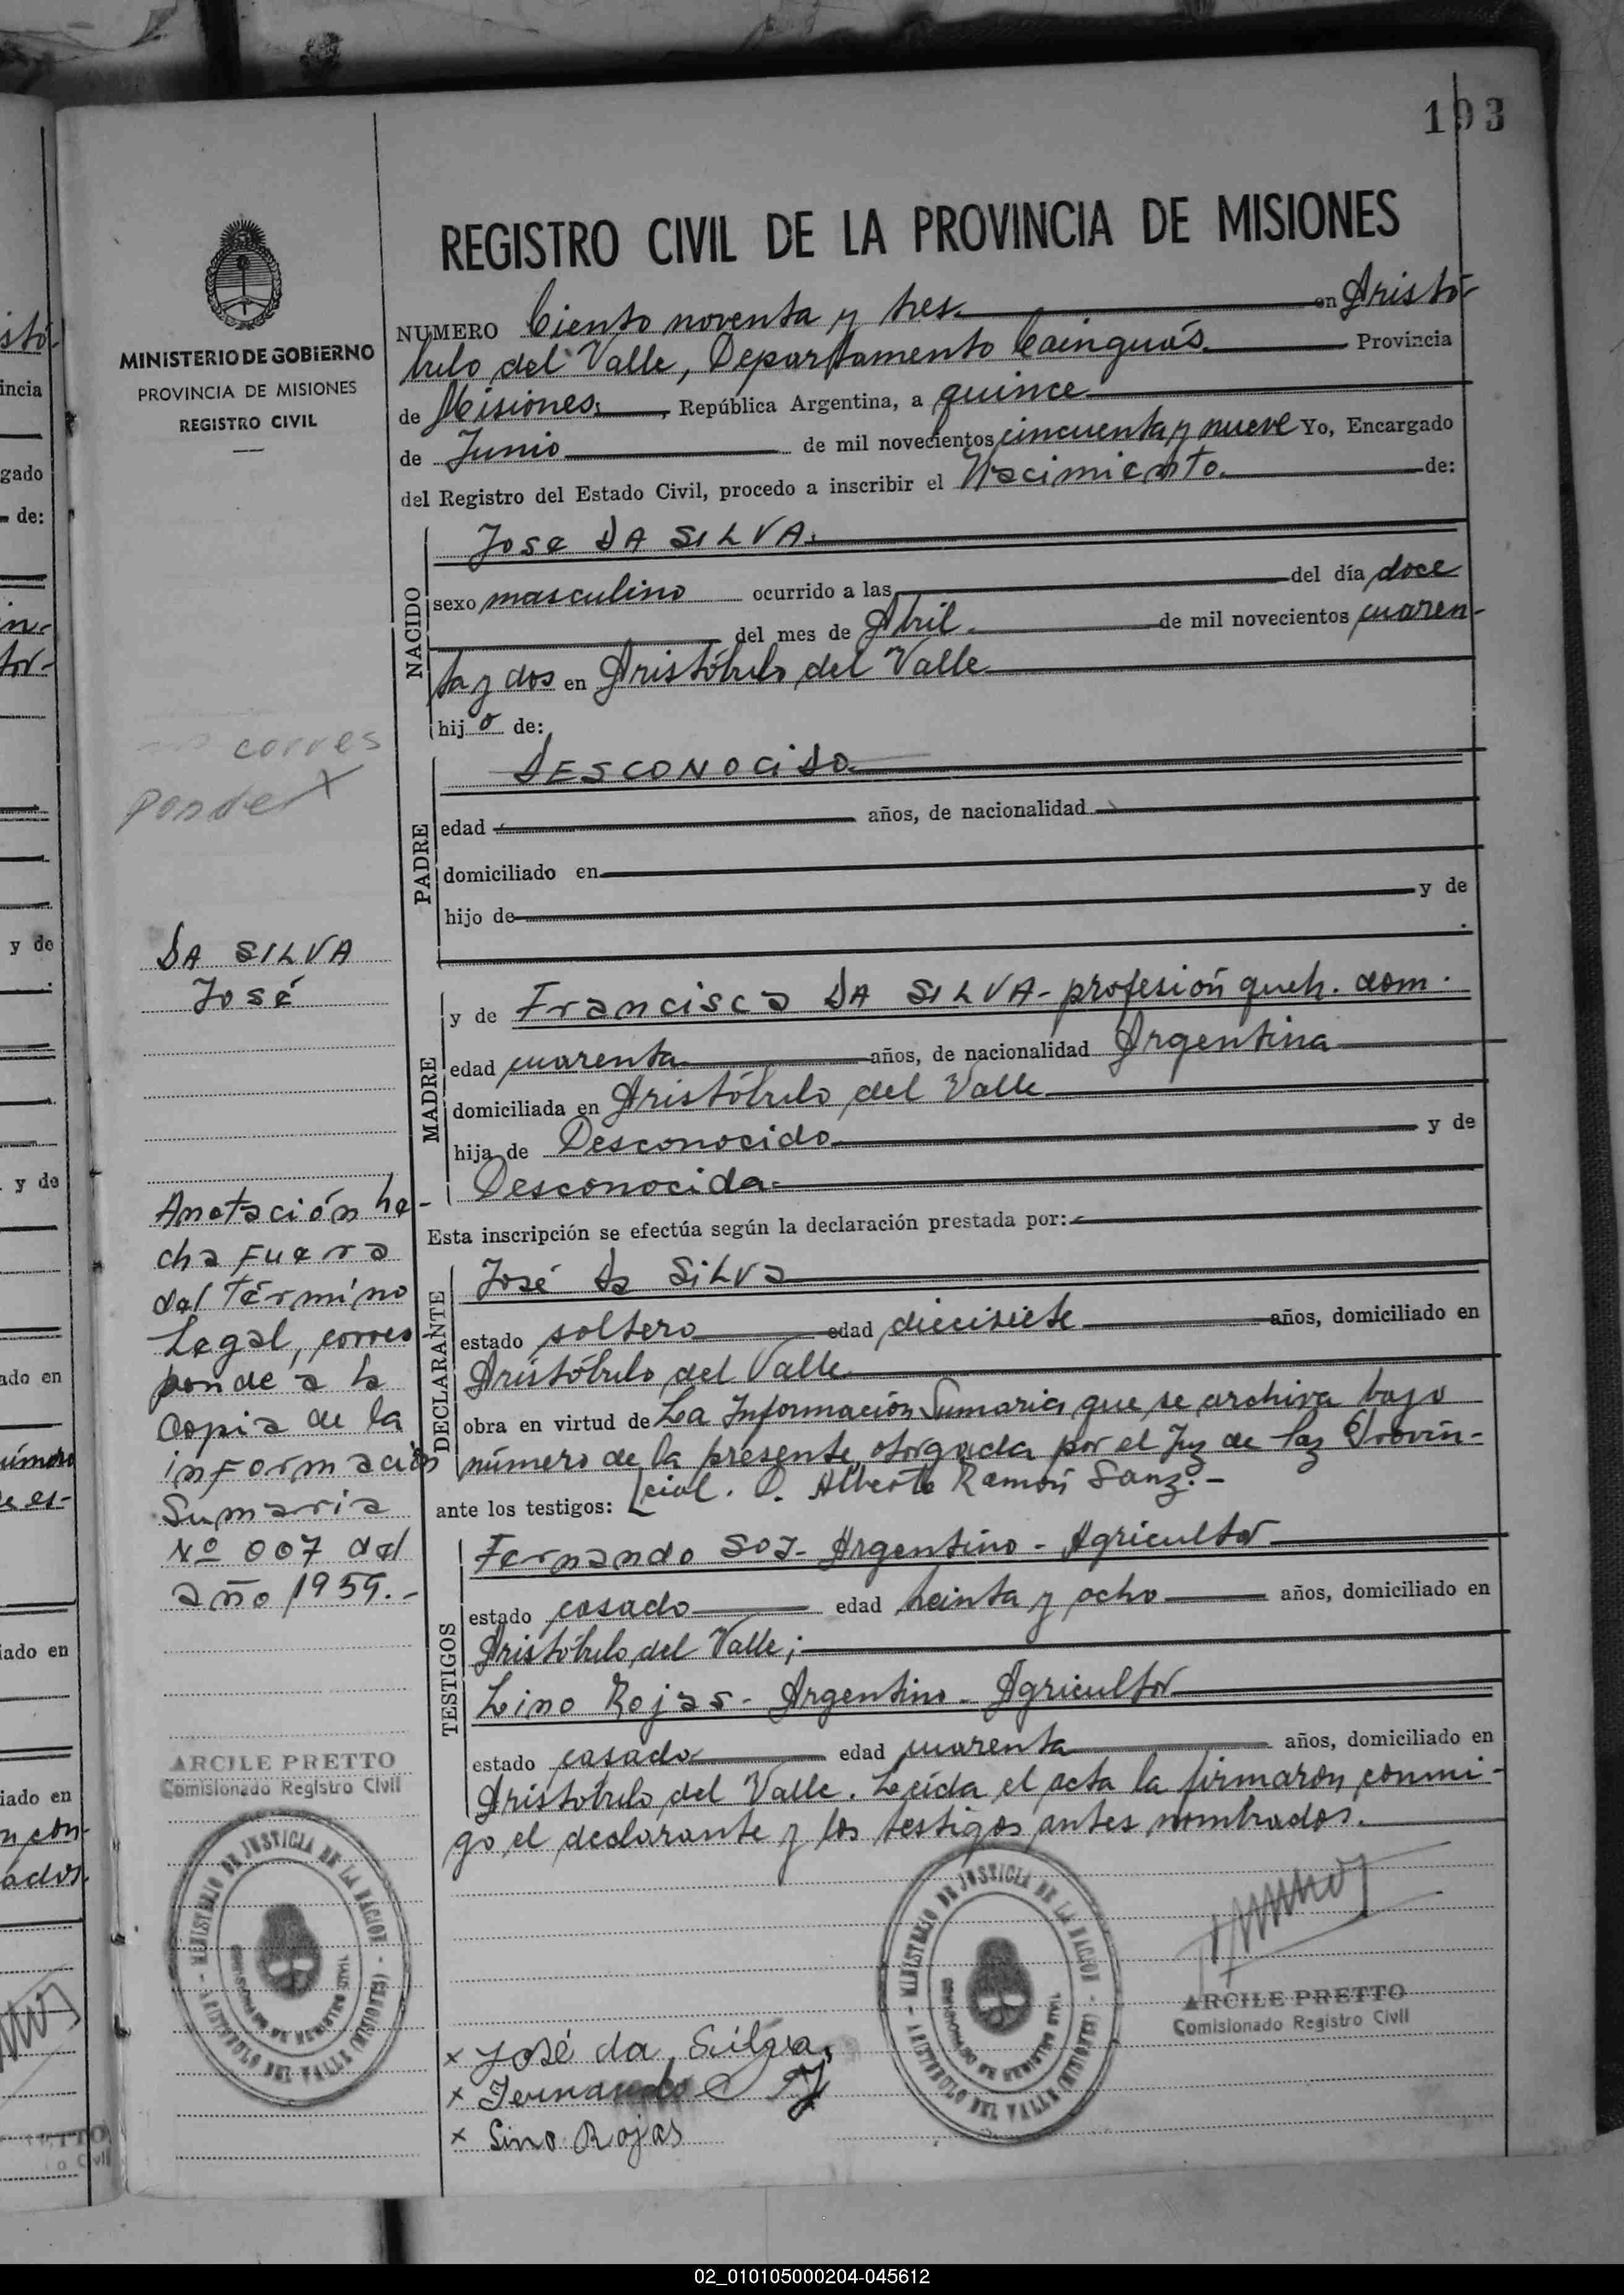 193
REGISTRO CIVIL DE LA PROVINCIA DE MISIONES
MINISTERIO DE GOBIERNO
PROVINCIA DE MISIONES
REGISTRO CIVIL
NUMERO Ciento noventa y tres en Aristó-
bulo del Valle, Departamento Cainguás Provincia
de Misiones, República Argentina, a quince
de Junio de mil novecientos cincuenta y nueve Yo, Encargado
del Registro del Estado Civil, procedo a inscribir el Nacimiento. de:
NACIDO
Jose DA SILVA.
sexo masculino ocurrido a las del día doce
del mes de Abril de mil novecientos cuaren-
ta y dos en Aristóbulo del Valle
hijo de:
corres
ponde
PADRE
DESCONOCIDO
edad años, de nacionalidad
domiciliado en
hijo de y de
DA SILVA
José
MADRE
y de Francisca DA SILVA - profesión queh. dom.
edad cuarenta años, de nacionalidad Argentina
domiciliada en Aristóbulo del Valle
hija de Desconocido y de
Desconocida.
Esta inscripción se efectúa según la declaración prestada por:
DECLARANTE
José Da Silva
estado soltero edad diecisiete años, domiciliado en
Aristóbulo del Valle
obra en virtud de La Información Sumaria que se archiva bajo
número de la presente, otorgada por el Juz de Paz Provin-
cial. D. Alberto Ramón Sanz.-
ante los testigos:
Anotación he-
cha fuera
del término
Legal, corres
ponde a la
Copia de la
información
Sumaria
Nº 007 del
año 1959.-
TESTIGOS
Fernando Soz - Argentino - Agricultor
estado casado edad treinta y ocho años, domiciliado en
Aristóbulo del Valle;
Lino Rojas - Argentino - Agricultor
estado casado edad cuarenta años, domiciliado en
Aristóbulo del Valle. Leída el acta la firmaron conmi-
go el declarante y los testigos antes nombrados.
ARCILE PRETTO
Comisionado Registro Civil
MINISTERIO DE JUSTICIA DE LA NACION - ARISTOBULO DEL VALLE (MISIONES)
MINISTERIO DE JUSTICIA DE LA NACION - ARISTOBULO DEL VALLE (MISIONES)
ARCILE PRETTO
Comisionado Registro Civil
x José da Silva
x Fernando
x Lino Rojas
02_010105000204-045612